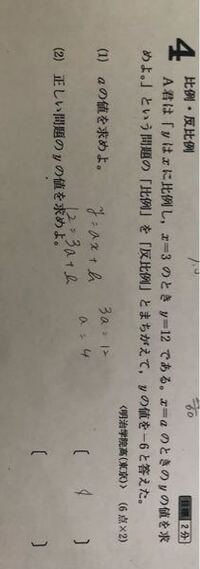 4 比例・反比例
目標 2分
A君は「yはxに比例し，x=3のときy=12である。x=aのときのyの値を求
めよ。」という問題の「比例」を「反比例」とまちがえて，yの値を-6と答えた。
〈明治学院高(東京)〉 (6点×2)
(1) aの値を求めよ。
y=ax+b
3a=12
12=3a+b
a=4
(2) 正しい問題のyの値を求めよ。